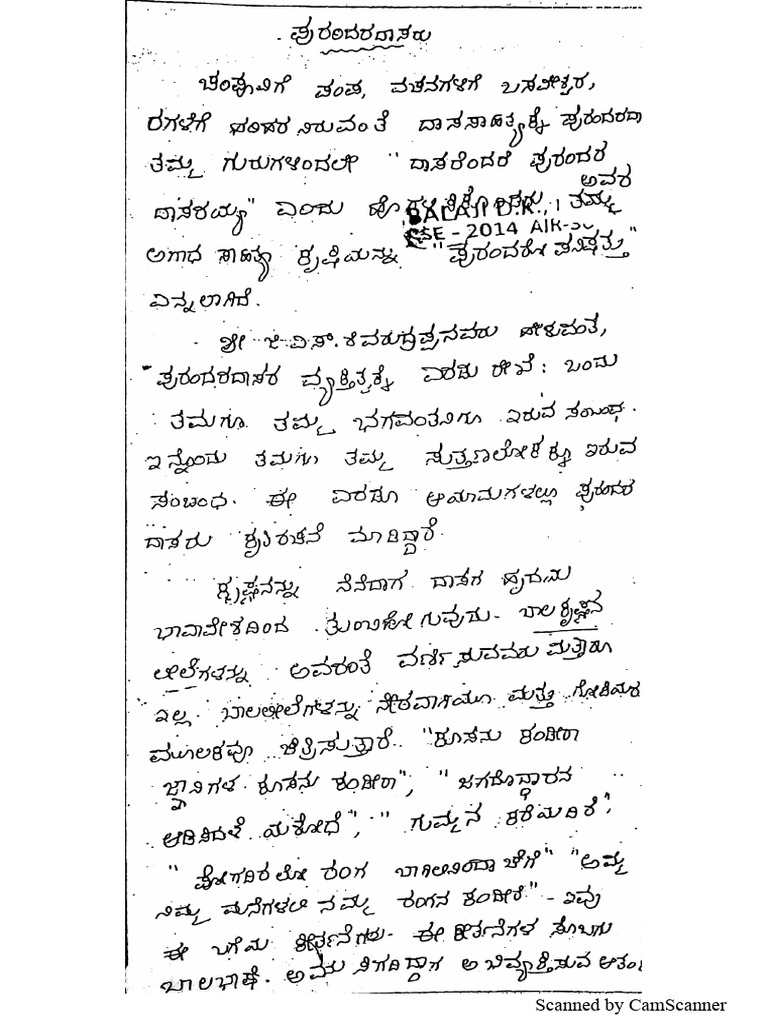 ಪುರಂದರದಾಸರು
ಚಂಪೂವಿಗೆ ಪಂಪ, ವಚನಗಳಿಗೆ ಬಸವೇಶ್ವರ,
ರಗಳೆಗೆ ಹರಿಹರ ನಿರುವಂತೆ ದಾಸಸಾಹಿತ್ಯಕ್ಕೆ ಪುರಂದರದಾ
ತಮ್ಮ ಗುರುಗಳಿಂದಲೇ "ದಾಸರೆಂದರೆ ಪುರಂದರ
ದಾಸರಯ್ಯಾ" ಎಂದು ಅವರ ತಮ್ಮ
BALAJI D.K.,
CSE - 2014 AIR-36
ಅಗಾಧ ಸಾಹಿತ್ಯ ಕೃಷಿಯನ್ನು "ಪುರಂದರೋಪನಿಷತ್ತು"
ಎನ್ನಲಾಗಿದೆ.
ಶ್ರೀ ಜಿ.ಎಸ್. ಶಿವರುದ್ರಪ್ಪನವರು ಹೇಳುವಂತೆ,
ಪುರಂದರದಾಸರ ವ್ಯಕ್ತಿತ್ವಕ್ಕೆ ಎರಡು : ಒಂದು
ತಮಗೂ ತಮ್ಮ ಭಗವಂತನಿಗೂ ಇರುವ ಸಂಬಂಧ.
ಇನ್ನೊಂದು ತಮಗೂ ತಮ್ಮ ಸುತ್ತಣಲೋಕಕ್ಕೂ ಇರುವ
ಸಂಬಂಧ. ಈ ಎರಡೂ ಆಯಾಮಗಳಲ್ಲೂ ಪುರಂದರ
ದಾಸರು ಕೃತಿರಚನೆ ಮಾಡಿದ್ದಾರೆ.
ಕೃಷ್ಣನನ್ನು ನೆನೆದಾಗ ದಾಸರ ಹೃದಯ
ಭಾವಾವೇಶದಿಂದ ತುಂಬಿಹೋಗುವುದು. ಬಾಲಕೃಷ್ಣನ
ಲೀಲೆಗಳನ್ನು ಅವರಂತೆ ವರ್ಣಿಸುವವರು ಮತ್ತಾರೂ
ಇಲ್ಲ. ಬಾಲಲೀಲೆಗಳನ್ನು ನೇರವಾಗಿಯೂ ಮತ್ತು ಗೋಪಿಯರ
ಮೂಲಕವೂ ಚಿತ್ರಿಸುತ್ತಾರೆ. "ಕೂಸನು ಕಂಡೀರಾ
ಜ್ಞಾನಿಗಳ ಕೂಸನು ಕಂಡೀರಾ", "ಜಗದೊದ್ಧಾರನ
ಆಡಿಸಿದಳೆ ಯಶೋಧೆ", "ಗುಮ್ಮನ ಕರೆಯದಿರೆ",
"ಪೋಗದಿರಲೋ ರಂಗ ಬಾಗಿಲಿನಿಂದಾಚೆಗೆ" "ಅಮ್ಮ
ನಿಮ್ಮ ಮನೆಗಳಲಿ ನಮ್ಮ ರಂಗನ ಕಂಡೀರೆ" - ಇವು
ಈ ಬಗೆಯ ಕೀರ್ತನೆಗಳು. ಈ ಕೀರ್ತನೆಗಳ ಸೊಬಗು
ಬಾಲಭಾಷೆ. ಅಮ್ಮ ಸಿಗದಿದ್ದಾಗ ಅಭಿವ್ಯಕ್ತಿಸುವ ಆತಂ
Scanned by CamScanner